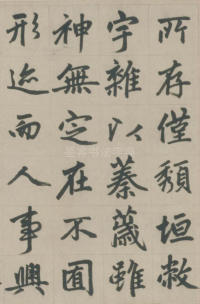 所存僅頹垣敝
宇雜以蓁薉雖
神無定在不囿
形迹而人事興